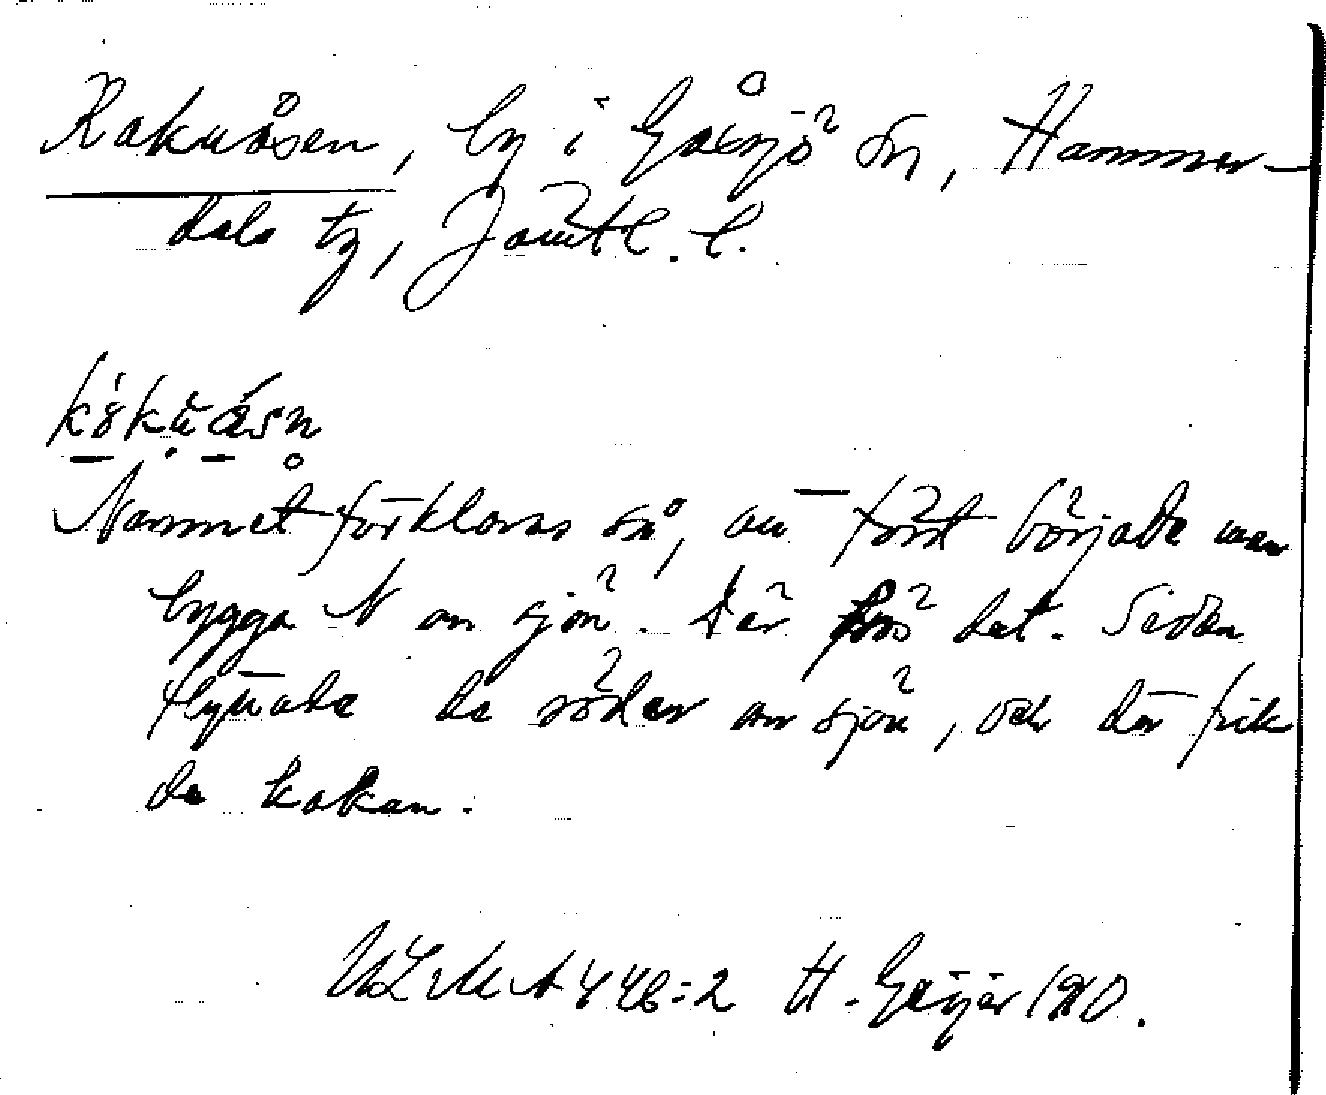 Kakuåsen, by i Gåxsjö sn, Hammer-
dals tg, Jämtl. l.
kökŭåsn
Namnet förklaras så, att först började man
bygga N om sjön. Där frös det. Sedan
flyttade de söder om sjön, och där fick
de kakan.
ULMA 446:2 H. Geijer 1910.